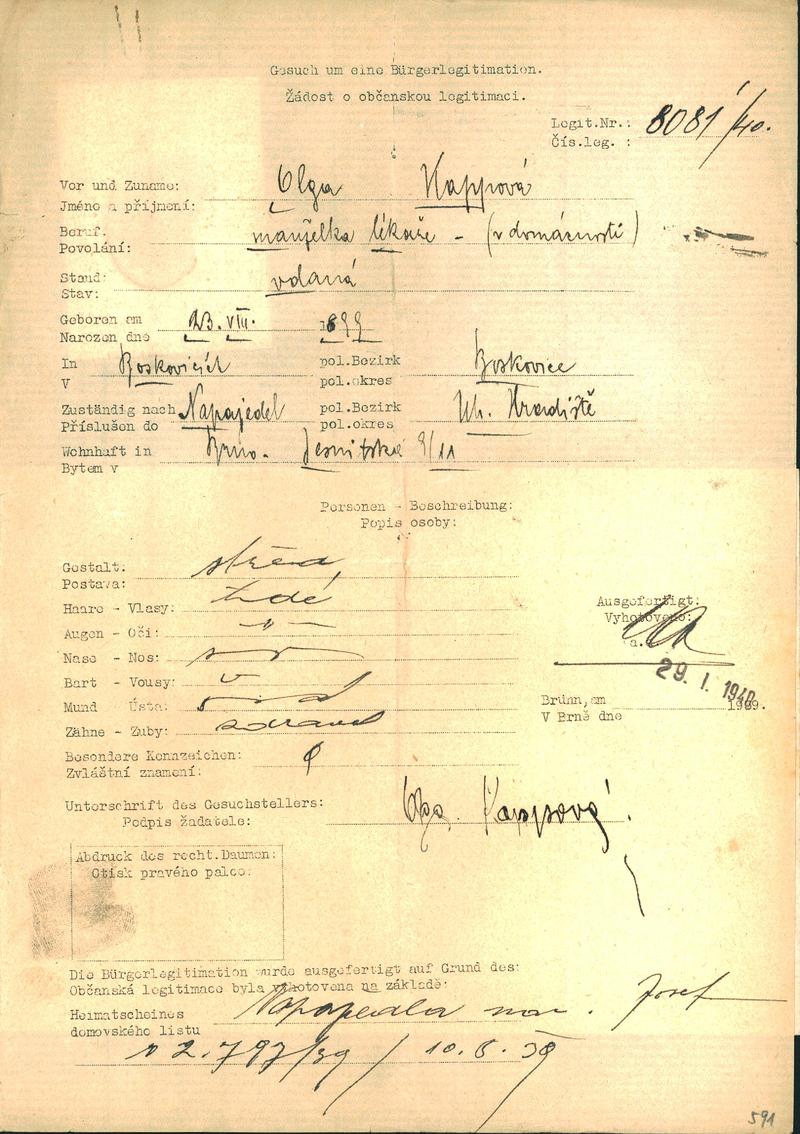 Gesuch um eine Bürgerlegitimation.
Žádost o občanskou legitimaci.
Legit.Nr.: 8081/40.
Čís.leg. :
Vor und Zuname: Olga Kappová
Jméno a příjmení:
Beruf. manželka lékaře - (v domácnosti)
Povolání:
Stand: vdaná
Stav:
Geboren am 23. VIII. 1899
Narozen dne
In Boskovicích pol.Bezirk Boskovice
V pol.okres
Zuständig nach Napajedel pol.Bezirk Uh. Hradiště
Příslušen do pol.okres
Wohnhaft in Brno - Jesuitská 9/11
Bytem v
Personen - Beschreibung:
Popis osoby:
Gestalt: střed
Postava:
Haare - Vlasy:
Augen - Oči: -"-
Nase - Nos:
Bart - Vousy:
Mund - Ústa:
Zähne - Zuby: zdravé
Ausgefertigt:
Vyhotoveno:
29. I. 1940
Brünn, am 1939.
V Brně dne
Besondere Kennzeichen:
Zvláštní znamení:
Unterschrift des Gesuchstellers: Olga Kappová.
Podpis žadatele:
Abdruck des recht.Daumen:
Otisk pravého palce:
Die Bürgerlegitimation wurde ausgefertigt auf Grund des:
Občanská legitimace byla vyhotovena na základě:
Heimatscheines Napajedla Josef
domovského listu
2.797/39 / 10.6.39
591